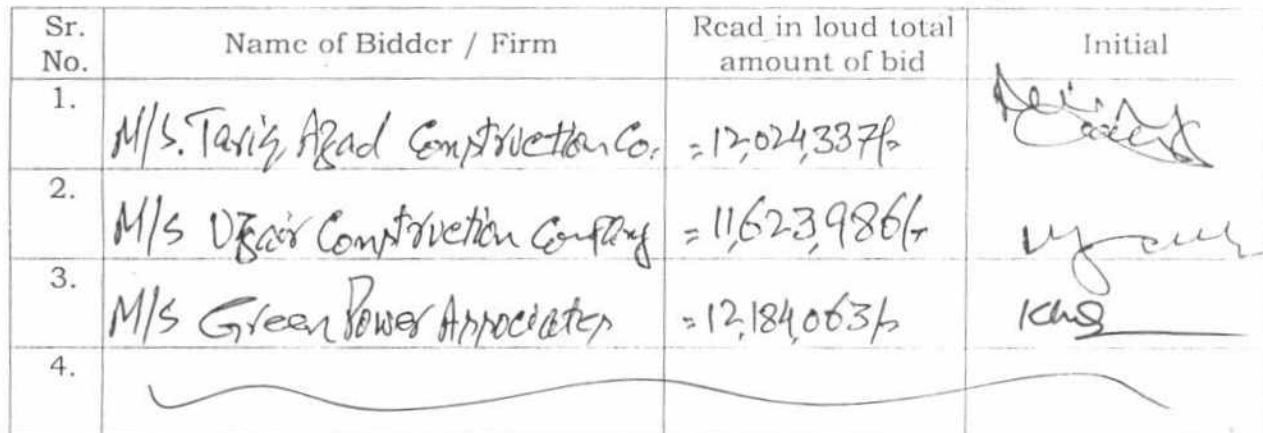 Sr. No. Name of Bidder / Firm Read in loud total amount of bid Initial
1. M/s. Tariq Azad Construction Co. =12,024,337/-
2. M/s Uzair Construction Company =11,623,986/-
3. M/s Green Power Associates =12,184,063/-
4.